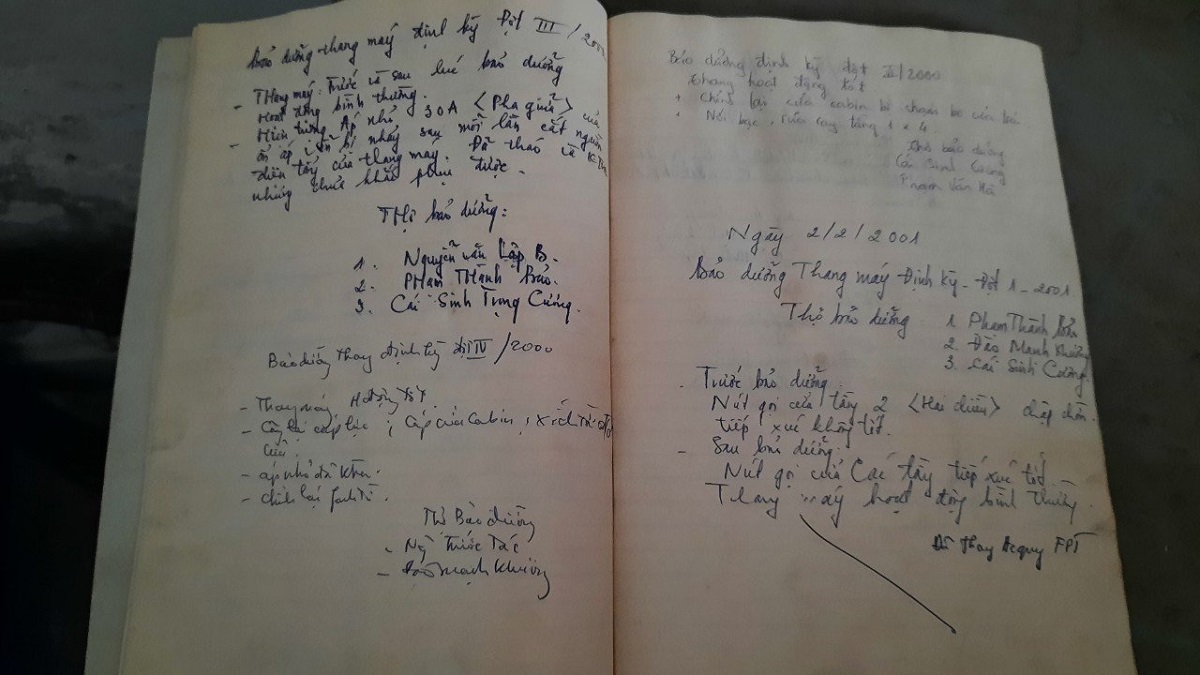 Bảo dưỡng thang máy định kỳ Đợt III / 200
- Thang máy: Trước và sau lúc bảo dưỡng
Hoạt động bình thường.
- Hiện tượng Áp nhô 30A <Pha giữa> của
ổn áp vẫn bị nháy sau mỗi lần cắt nguồn
điện tầng của thang máy. Đã tháo và KTra
nhưng chưa khắc phục được.
THợ bảo dưỡng:
1. Nguyễn văn Lập B.
2. PHạm THành Bảo.
3. Cái Sinh Trọng Cương.
Bảo dưỡng thang định kỳ đợt IV/2000
- Thang máy H động tốt.
- Căng lại cáp lực; Cáp cửa Cabin,
cửa.
- chỉnh lại
Thợ Bảo dưỡng
- Ng Trước Tác
- Đào Mạnh Khương
Bảo dưỡng định kỳ đợt II/2000
Thang hoạt động tốt
+ Chỉnh lại cửa cabin bị chạm
+ Nối bạc, tầng 1 x 4
Thợ bảo dưỡng
Cái Sinh Cương
Phạm Văn Hà
Ngày 2/2/2001
Bảo dưỡng Thang máy Định kỳ - Đợt 1 - 2001
Thợ bảo dưỡng 1 Phạm Thành Bảo
2. Đào Mạnh Khương
3. Cái Sinh Cương
- Trước bảo dưỡng.
Nút gọi cửa tầng 2 <Hai chiều> chập chờn.
tiếp xúc không tốt.
- Sau bảo dưỡng:
Nút gọi cửa Các tầng tiếp xúc tốt.
Thang máy hoạt động bình thường
Đã Thay Acquy FPT